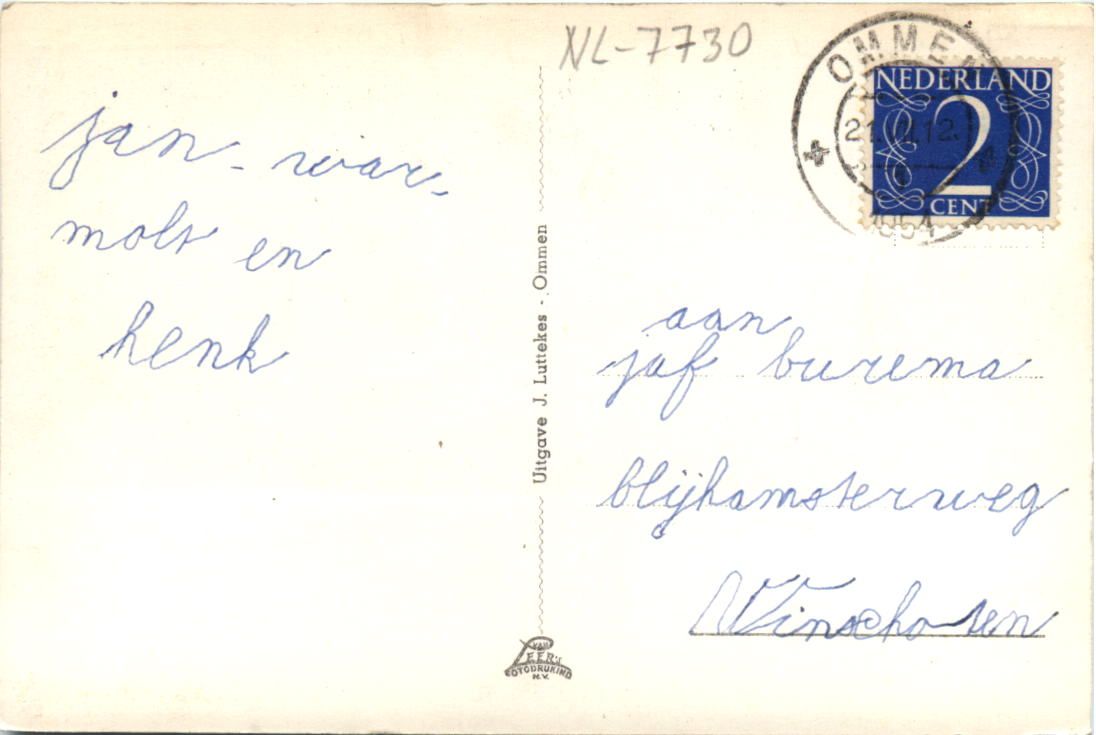 NL-7730
OMMEN
21.VII.12.
1954
NEDERLAND
2
CENT
jan - war-
molt en
henk
Uitgave J. Luttekes - Ommen
aan
jaf burema
blijhamsterweg
Winschoten
VAN
LEER'S
FOTODRUKIND
N.V.